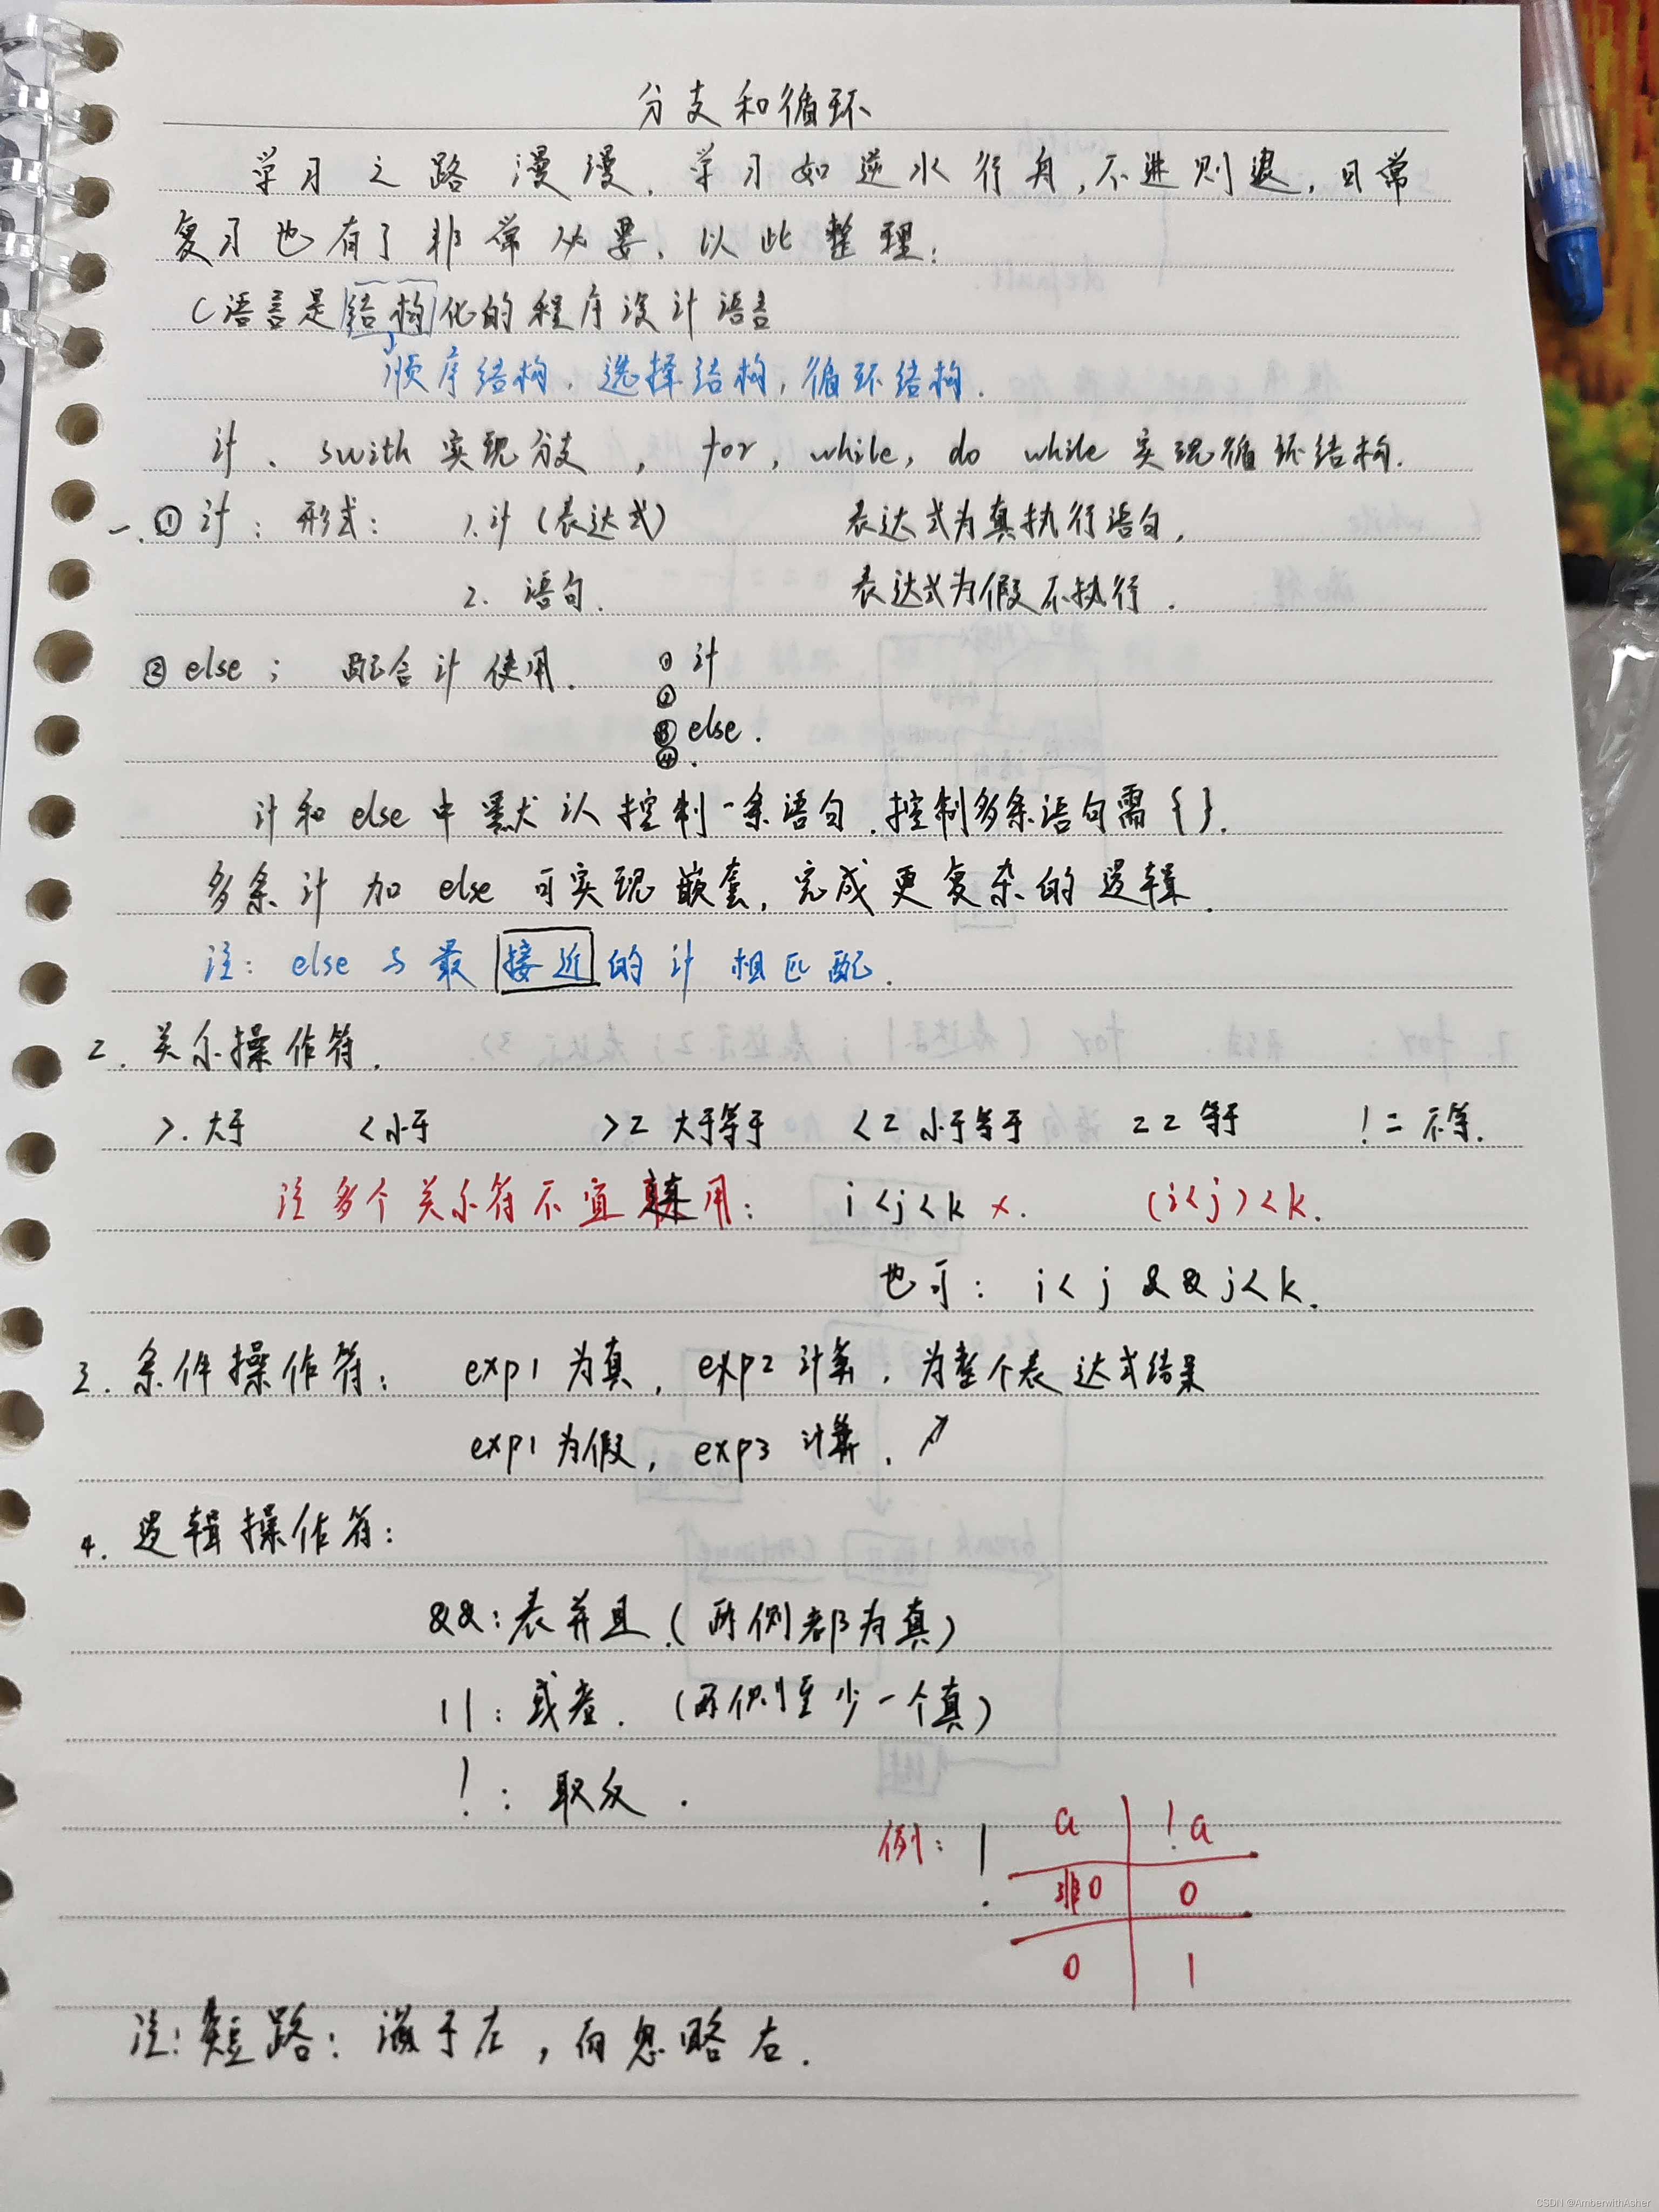 分支和循环
学习之路漫漫，学习如逆水行舟，不进则退，日常
复习也有了非常必要，以此整理：
C语言是结构化的程序设计语言
顺序结构，选择结构，循环结构.
if、swith 实现分支，for，while，do while 实现循环结构.
一.① if：形式：1.if（表达式） 表达式为真执行语句，
2. 语句. 表达式为假不执行.
② else； 配合if使用. ① if
②
③ else.
④.
if和else中默认控制一条语句.控制多条语句需{ }.
多条if加else可实现嵌套，完成更复杂的逻辑.
注：else与最接近的if相匹配.
2. 关系操作符.
>.大于 <小于 >=大于等于 <=小于等于 ==等于 !=不等.
注多个关系符不宜用： i<j<k ×. (i<j)<k.
也可： i<j && j<k.
3. 条件操作符： exp1为真，exp2计算，为整个表达式结果
exp1为假，exp3计算.↗
4. 逻辑操作符：
&&：表并且.（两侧都为真）
||：或者.（两侧至少一个真）
!：取反.
例： ! a !a
非0 0
0 1
注：短路：满于左，而忽略右.
CSDN @AmberwithAsher